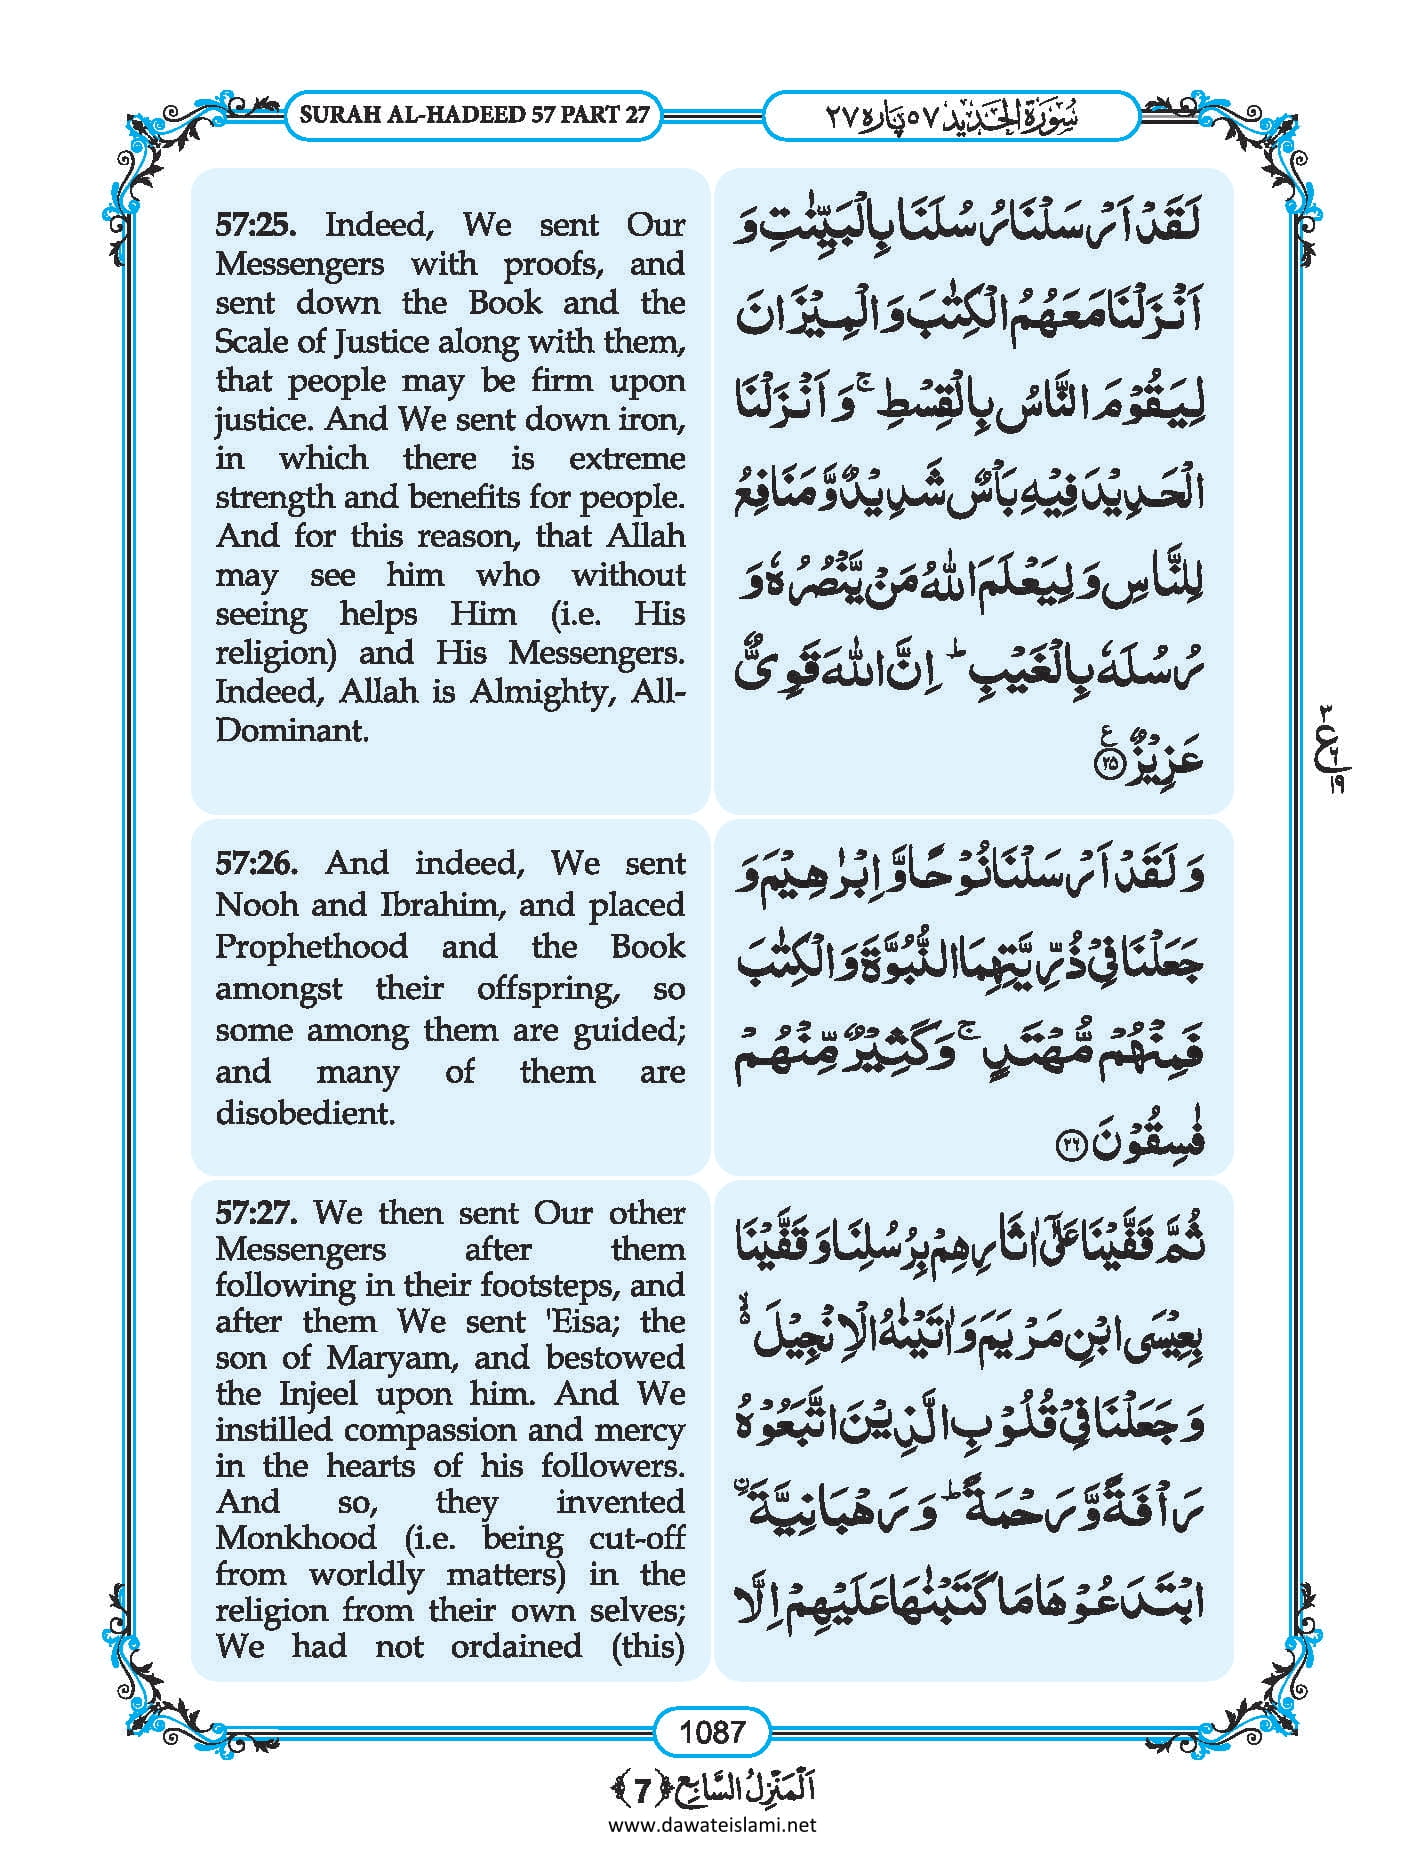 SURAH AL-HADEED 57 PART 27
سُوْرَةُ الْحَدِيْد ٥٧ پَارہ ٢٧
57:25. Indeed, We sent Our
Messengers with proofs, and
sent down the Book and the
Scale of Justice along with them,
that people may be firm upon
justice. And We sent down iron,
in which there is extreme
strength and benefits for people.
And for this reason, that Allah
may see him who without
seeing helps Him (i.e. His
religion) and His Messengers.
Indeed, Allah is Almighty, All-
Dominant.
لَقَدْ اَرْسَلْنَا رُسُلَنَا بِالْبَيِّنٰتِ وَ
اَنْزَلْنَا مَعَهُمُ الْكِتٰبَ وَ الْمِيْزَانَ
لِيَقُوْمَ النَّاسُ بِالْقِسْطِ ۚ وَ اَنْزَلْنَا
الْحَدِيْدَ فِيْهِ بَاْسٌ شَدِيْدٌ وَّ مَنَافِعُ
لِلنَّاسِ وَ لِيَعْلَمَ اللهُ مَنْ يَّنْصُرُهٗ وَ
رُسُلَهٗ بِالْغَيْبِ ؕ اِنَّ اللهَ قَوِيٌّ
عَزِيْزٌ ﴿۲۵﴾ ع
۳
ع
۶
۱۹
57:26. And indeed, We sent
Nooh and Ibrahim, and placed
Prophethood and the Book
amongst their offspring, so
some among them are guided;
and many of them are
disobedient.
وَ لَقَدْ اَرْسَلْنَا نُوْحًا وَّ اِبْرٰهِيْمَ وَ
جَعَلْنَا فِيْ ذُرِّيَّتِهِمَا النُّبُوَّةَ وَ الْكِتٰبَ
فَمِنْهُمْ مُّهْتَدٍ ۚ وَ كَثِيْرٌ مِّنْهُمْ
فٰسِقُوْنَ ﴿۲۶﴾
57:27. We then sent Our other
Messengers after them
following in their footsteps, and
after them We sent 'Eisa; the
son of Maryam, and bestowed
the Injeel upon him. And We
instilled compassion and mercy
in the hearts of his followers.
And so, they invented
Monkhood (i.e. being cut-off
from worldly matters) in the
religion from their own selves;
We had not ordained (this)
ثُمَّ قَفَّيْنَا عَلٰۤى اٰثَارِهِمْ بِرُسُلِنَا وَ قَفَّيْنَا
بِعِيْسَى ابْنِ مَرْيَمَ وَ اٰتَيْنٰهُ الْاِنْجِيْلَ ۙ۬
وَ جَعَلْنَا فِيْ قُلُوْبِ الَّذِيْنَ اتَّبَعُوْهُ
رَاْفَةً وَّ رَحْمَةً ؕ وَ رَهْبَانِيَّةَ ِۨ
ابْتَدَعُوْهَا مَا كَتَبْنٰهَا عَلَيْهِمْ اِلَّا
1087
اَلْمَنْزِلُ السَّابِع ﴿7﴾
www.dawateislami.net